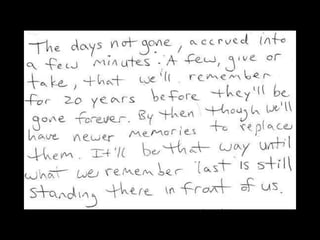 The days not gone, accrued into
a few minutes. A few, give or
take, that we'll remember
for 20 years before they'll be
gone forever. By then though we'll
have newer memories to replace
them. It'll be that way until
what we remember last is still
standing there in front of us.